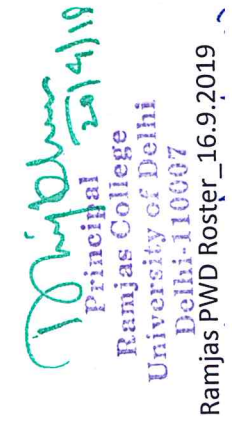 20/9/19
Principal
Ramjas College
University of Delhi
Delhi-110007
Ramjas PWD Roster_16.9.2019